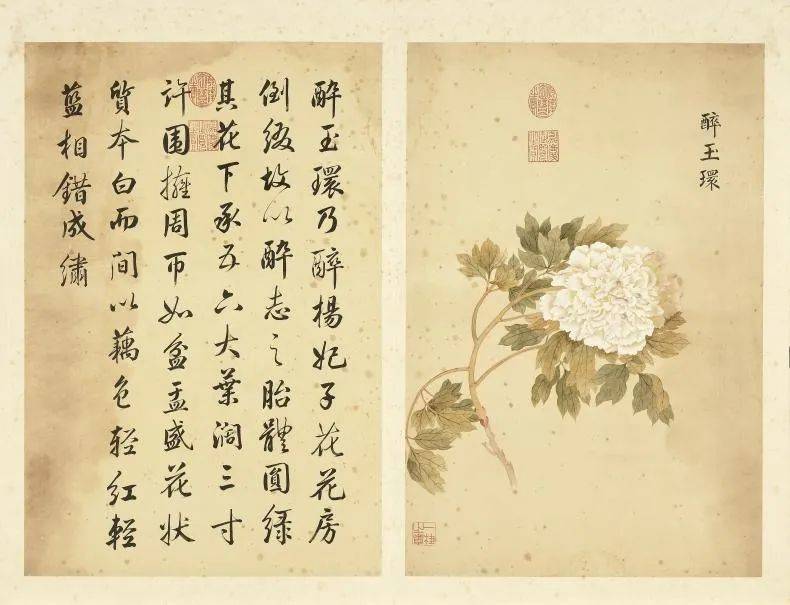 醉玉環
醉玉環乃醉楊妃子花花房
倒綴故以醉志之胎體圓綠
其花下承五六大葉濶三寸
許圍擁周帀如盆盂盛花狀
質本白而間以藕色輕紅輕
藍相錯成繡